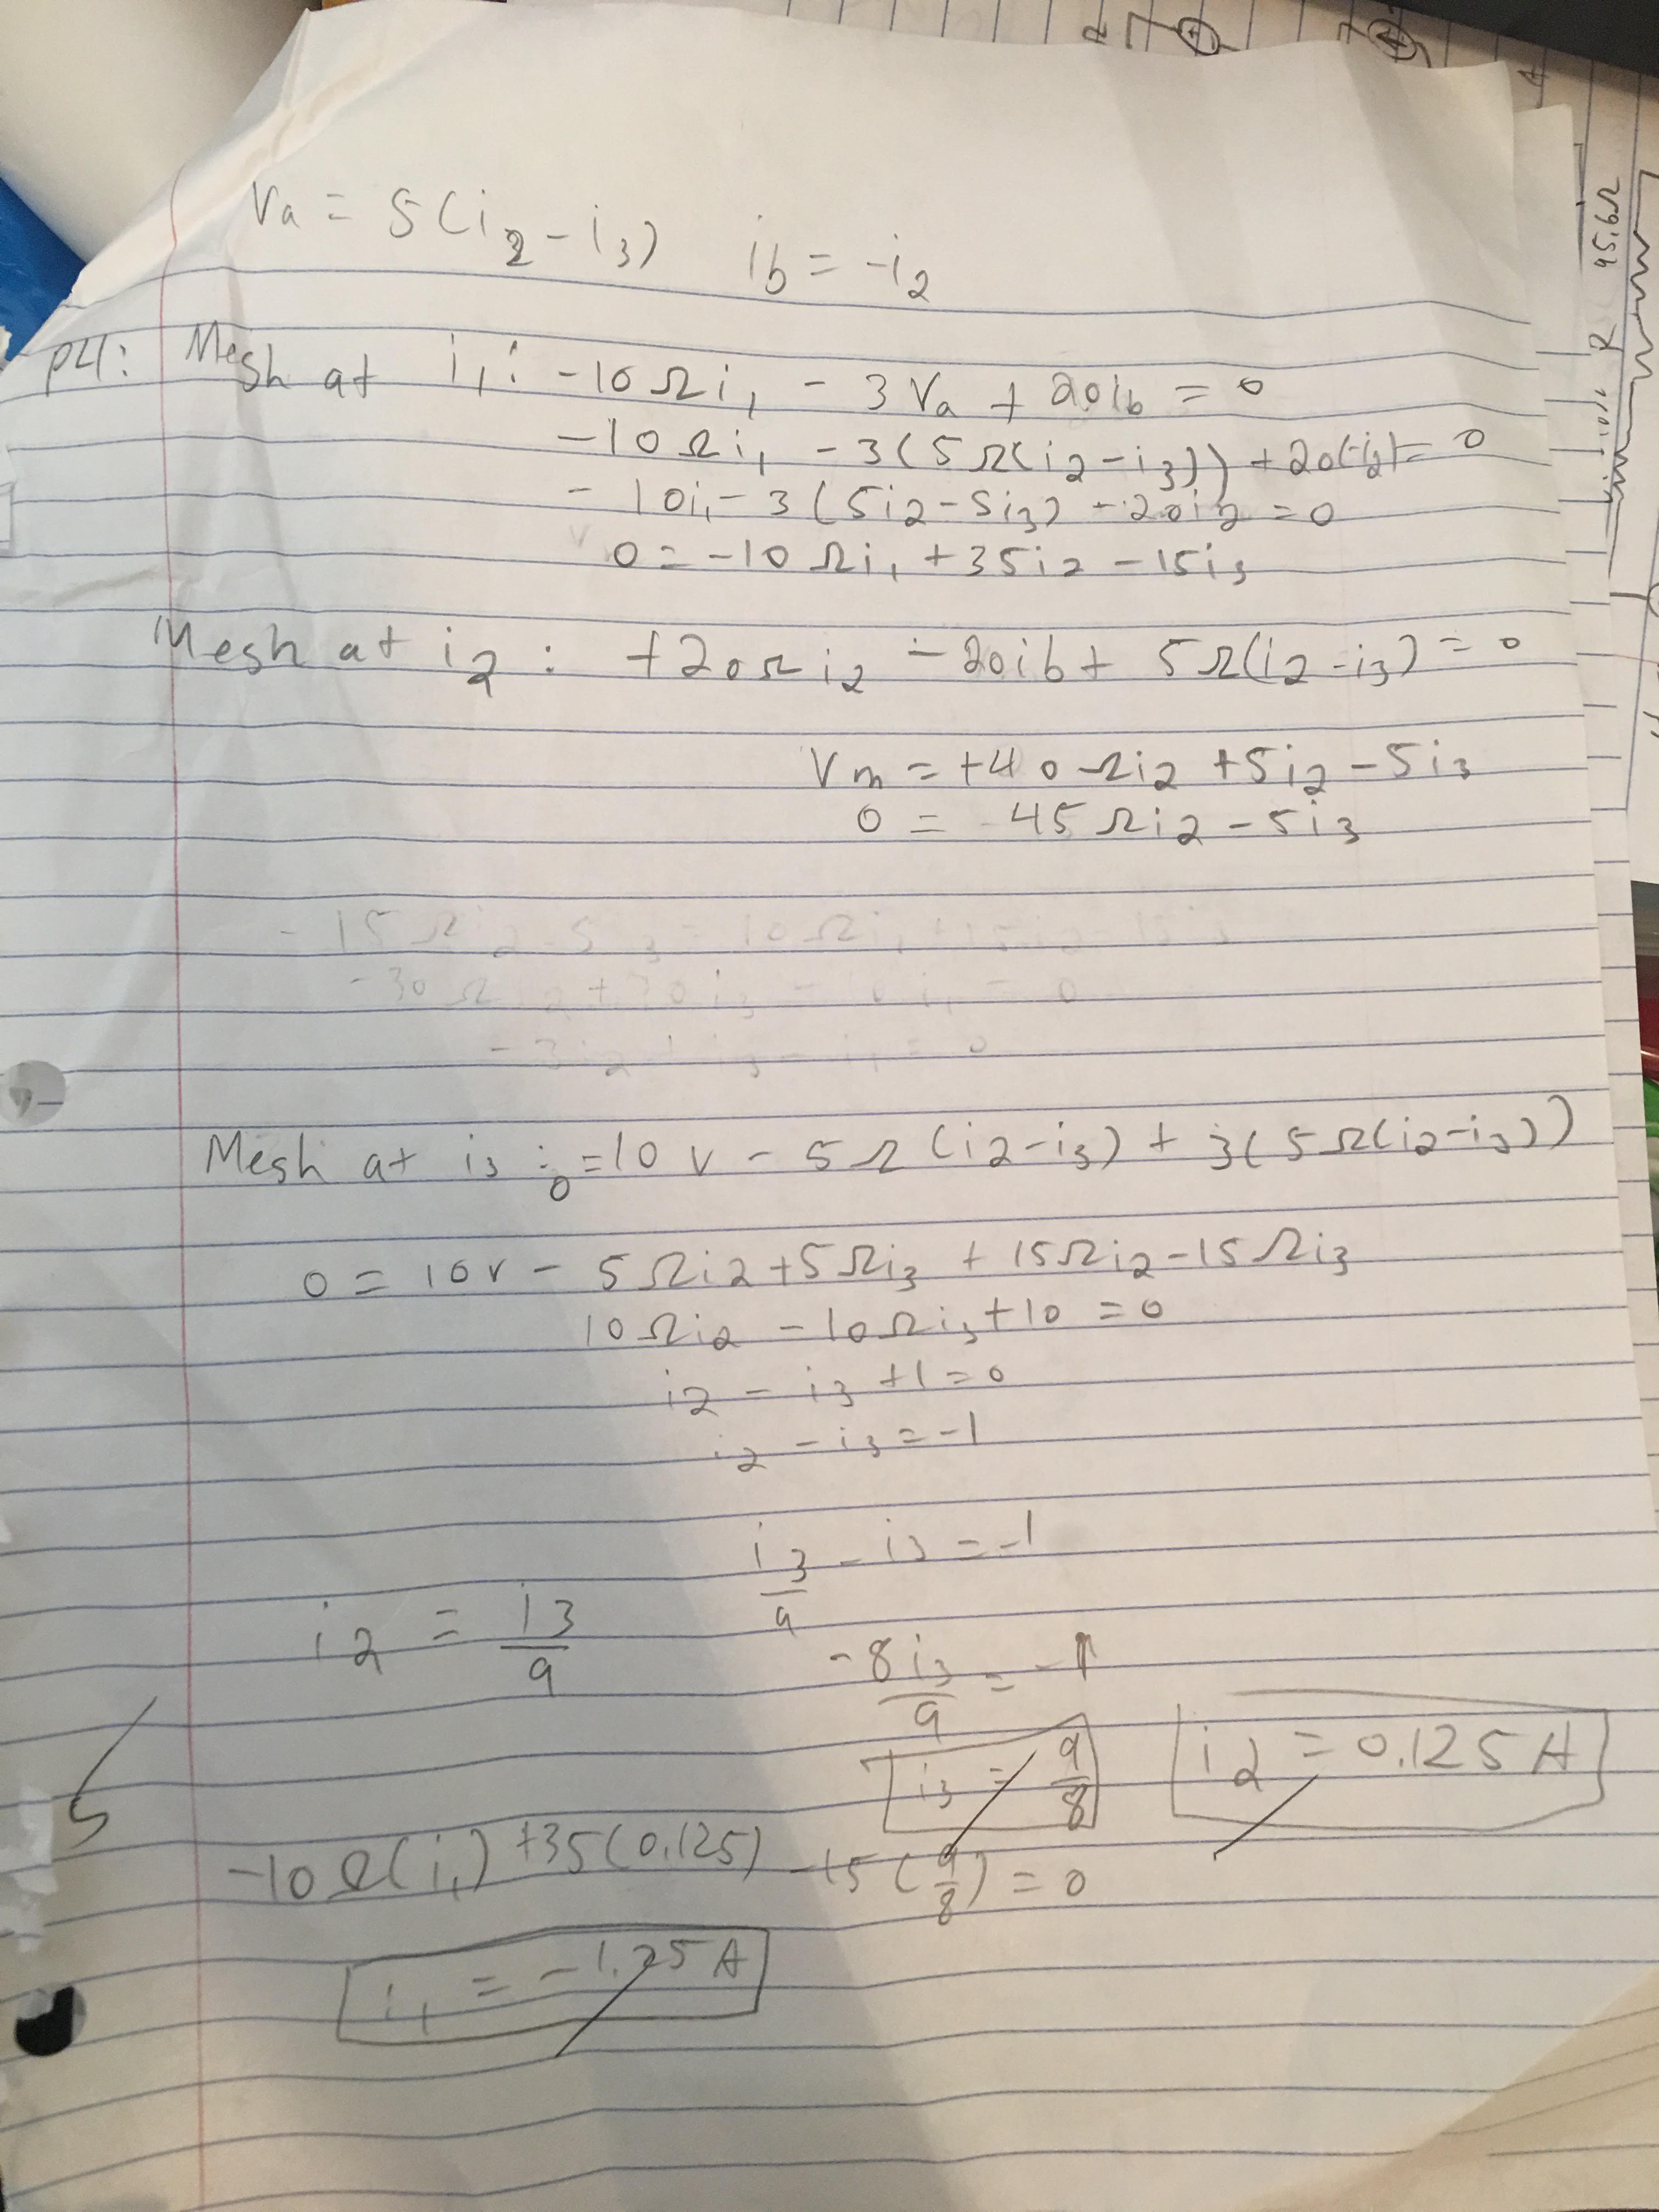 Va = 5(i2 - i3) ib = -i2
P4: Mesh at i1: -10Ωi1 - 3Va + 20ib = 0
-10Ωi1 - 3(5Ω(i2-i3)) + 20(-i2) = 0
- 10i1 - 3(5i2-5i3) - 20i2 = 0
0 = -10Ωi1 + 35i2 - 15i3
Mesh at i2: +20Ωi2 - 20ib + 5Ω(i2-i3) = 0
Vm = +40Ωi2 + 5i2 - 5i3
0 = 45Ωi2 - 5i3
Mesh at i3: 0 = 10v - 5Ω(i2-i3) + 3(5Ω(i2-i3))
0 = 10v - 5Ωi2 + 5Ωi3 + 15Ωi2 - 15Ωi3
10Ωi2 - 10Ωi3 + 10 = 0
i2 - i3 + 1 = 0
i2 - i3 = -1
i3/9 - i3 = -1
i2 = i3/9
-8i3/9 = -1
i3 = 9/8
i2 = 0.125 A
-10Ω(i1) + 35(0.125) - 15(9/8) = 0
i1 = -1.25 A
45.6Ω
R